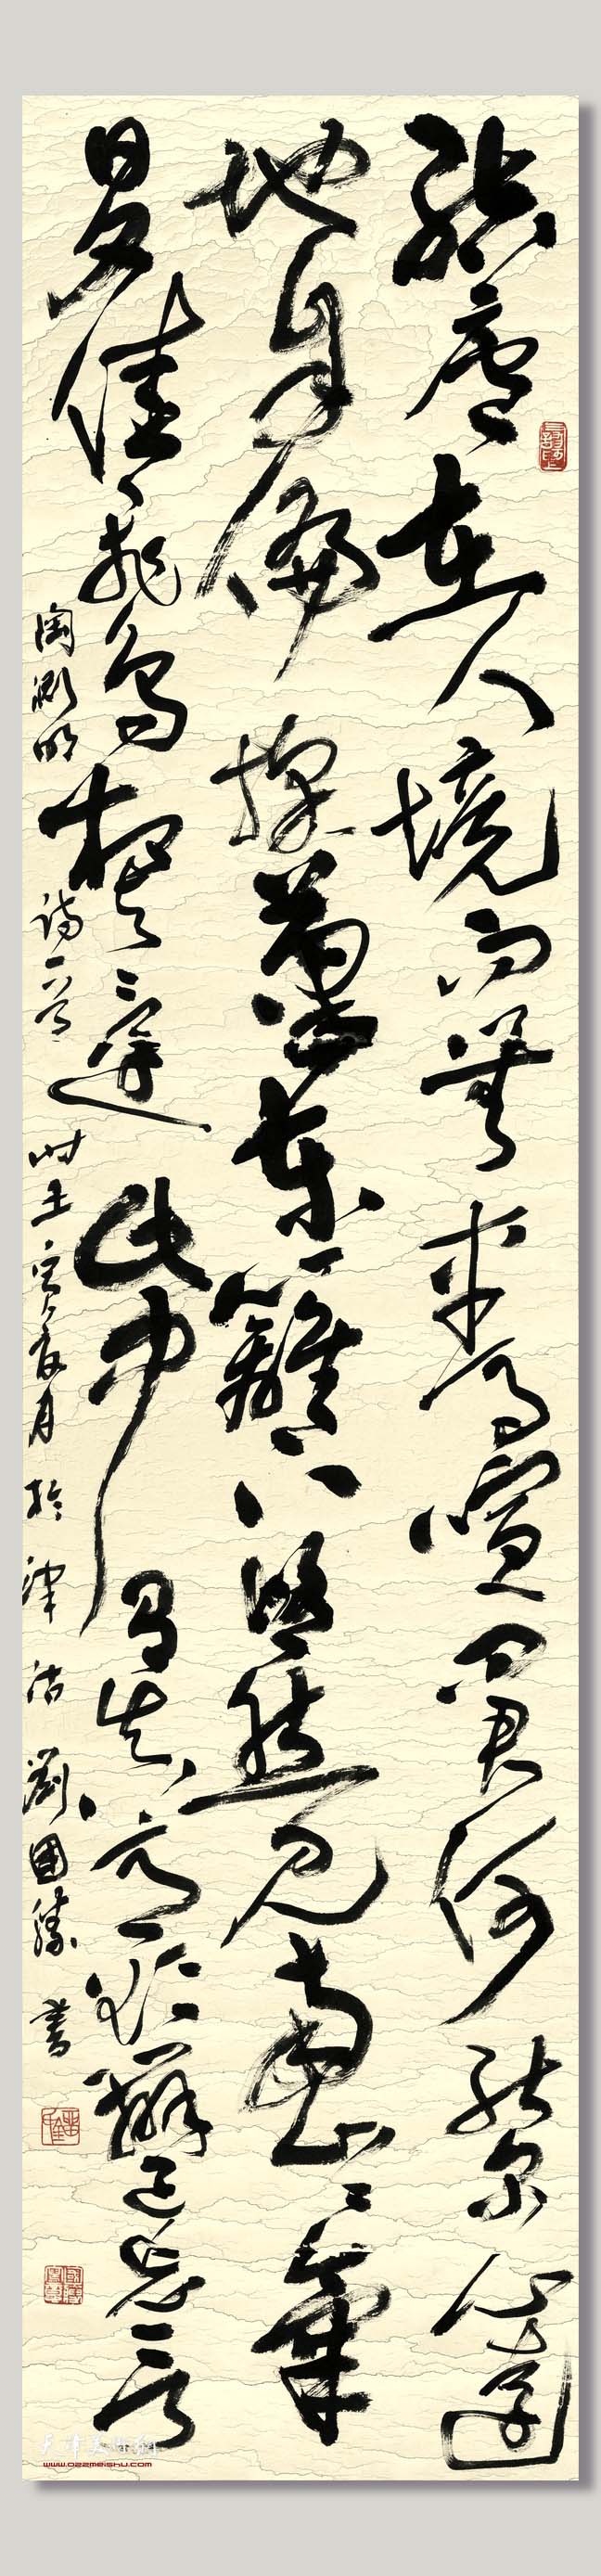 結廬在人境而無車馬喧問君何能爾心遠
地自偏採菊東籬下悠然見南山〻氣
日夕佳飛鳥相與還此中有真意欲辨已忘言
陶淵明詩一首時壬寅夏月於津沽劉國勝書
天津美术网
www.022meishu.com